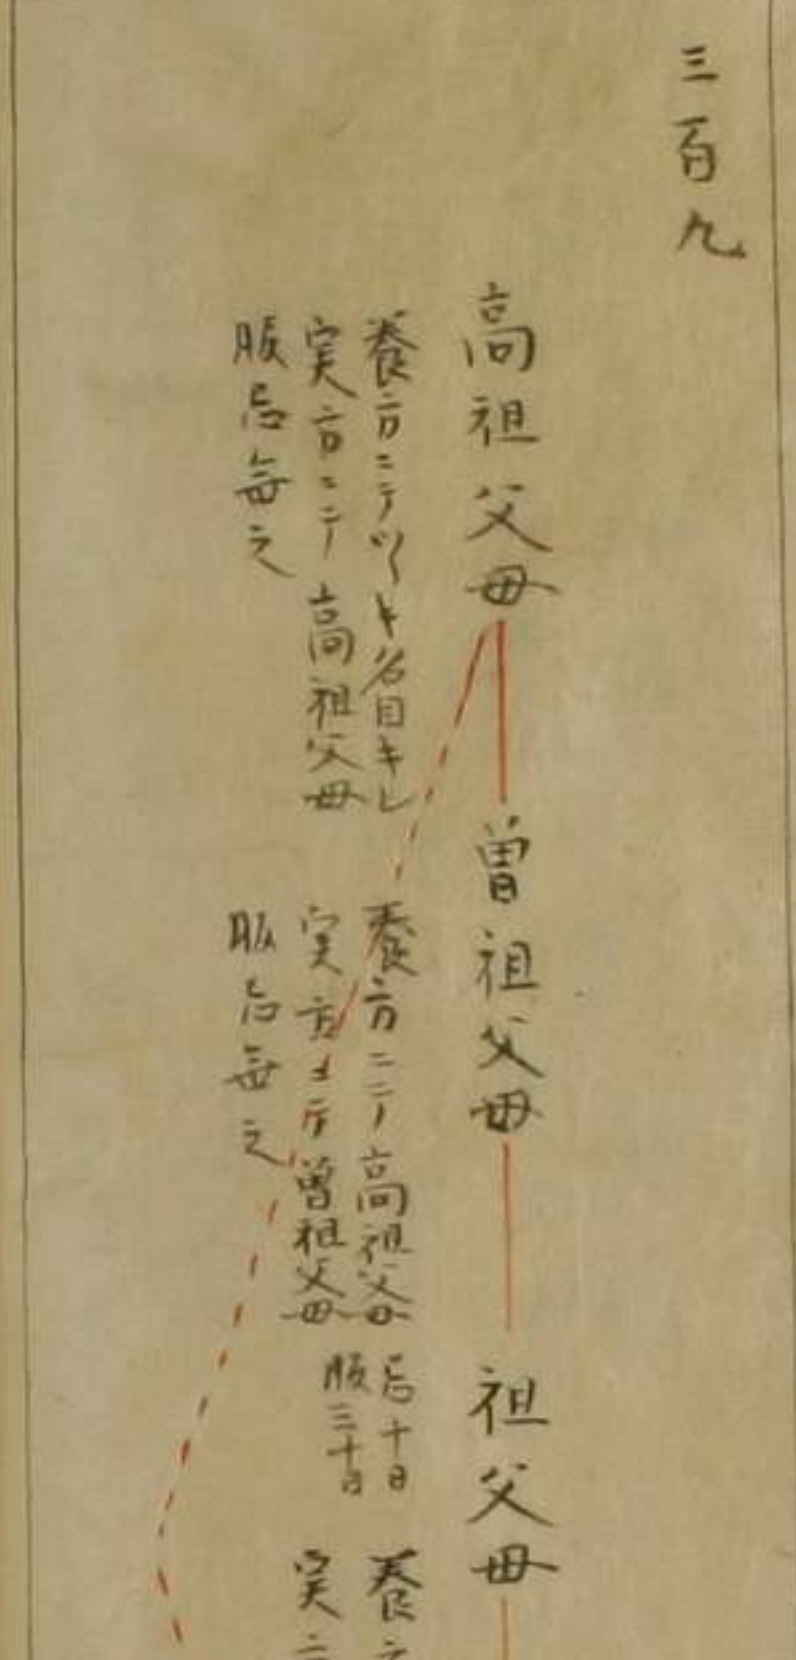 三百九
高祖父母
養方ニテツヽキ名目キレ
実方ニテ高祖父母
服忌無之
曽祖父母
養方ニテ高祖父母
実方ニテ曽祖父母
服忌無之
忌十日
服三十日
祖父母
養
実